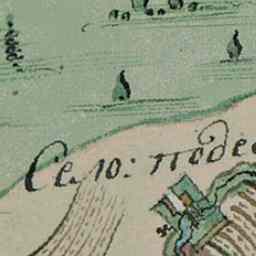 Село: подес